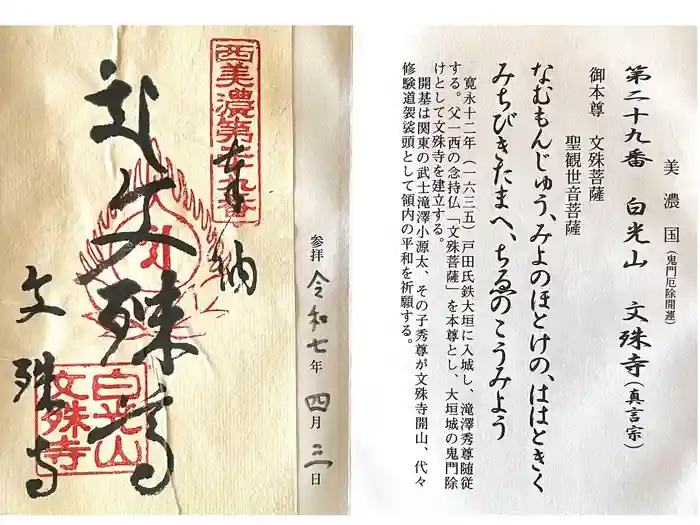 美濃国(鬼門厄除開運)
第二十九番 白光山 文殊寺(真言宗)
御本尊 文殊菩薩
聖観世音菩薩
なむもんじゅう、みよのほとけの、ははときく
みちびきたまへ、ちゑのこうみよう
寛永十二年(一六三五)戸田氏鉄大垣に入城し、滝澤秀尊随従
する。父一西の念持仏「文殊菩薩」を本尊とし、大垣城の鬼門除
けとして文殊寺を建立する。
開基は関東の武士滝澤小源太、その子秀尊が文殊寺開山、代々
修験道袈裟頭として領内の平和を祈願する。
参拝 令和七年 四月 三日
西美濃第二十九番
奉納
文殊尊
白光山
文殊寺
文殊寺